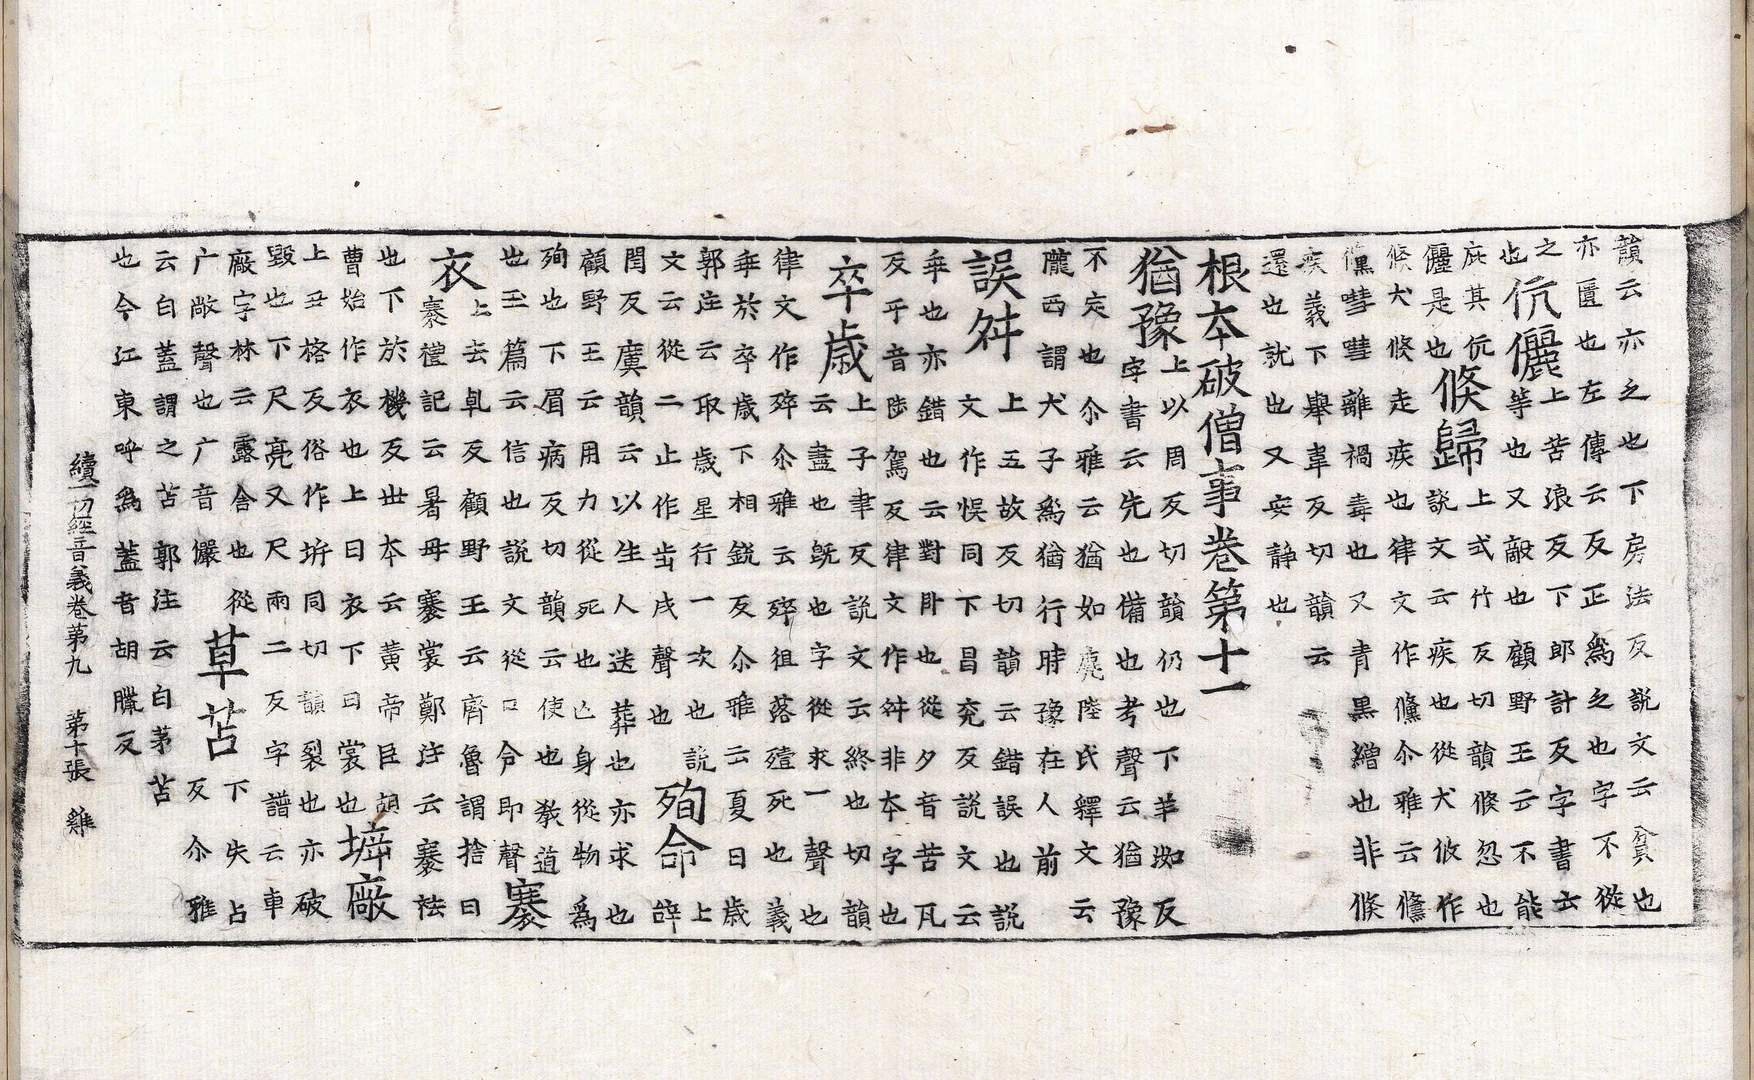 韻云亦乏也下房法反說文云貧也
亦匱也左傳云反正為乏也字不從
之
也
伉儷 上苦浪反下郎計反字書云
等也又敵也顧野王云不能
庇其伉
儷是也
倏歸 上式竹反切韻倏忽也
說文云疾也從犬攸作
倏犬倏走疾也律文作儵尒雅云儵
儵嘒嘒離禍毒也又青黑繒也非倏
疾義下舉韋反切韻云
還也就也又安靜也
根本破僧事卷第十一
猶豫 上以周反切韻仍也下羊洳反
字書云先也備也考聲云猶豫
不定也尒雅云猶如麂陸氏釋文云
隴西謂犬子為猶行時豫在人前
誤舛 上五故反切韻云錯誤也說
文作悮同下昌兖反說文云
乖也亦錯也云對卧也從夕音苦瓦
反㐄音陟駕反律文作舛非本字也
卒歲 上子聿反說文云終也切韻
云盡也旣也字從求一聲也
律文作猝尒雅云猝徂落殪死也義
乖於卒歲下相銳反尒雅云夏曰歲
郭注云取歲星行一次也說
文云從二止作步戌聲也
殉命 上
辝
閏反廣韻云以生人送葬也亦求也
顧野王云用力從死也亡身從物為
殉也下眉病反切韻云使也教道
也玉篇云信也說文從口令即聲
褰
衣 上去乹反顧野王云齊魯謂捨曰
褰禮記云暑毋褰裳鄭注云褰袪
也下於機反世本云黃帝臣胡
曹始作衣也上曰衣下曰裳也
墶廠
上丑格反俗作㙤同切韻裂也亦破
毀也下尺亮又尺兩二反字譜云車
廠字林云露舍也從
广敞聲也广音儼
草苫 下失占
反尒雅
云白蓋謂之苫郭注云白茅苫
也今江東呼為蓋音胡臘反
續一切經音義卷第九 第十張 雞